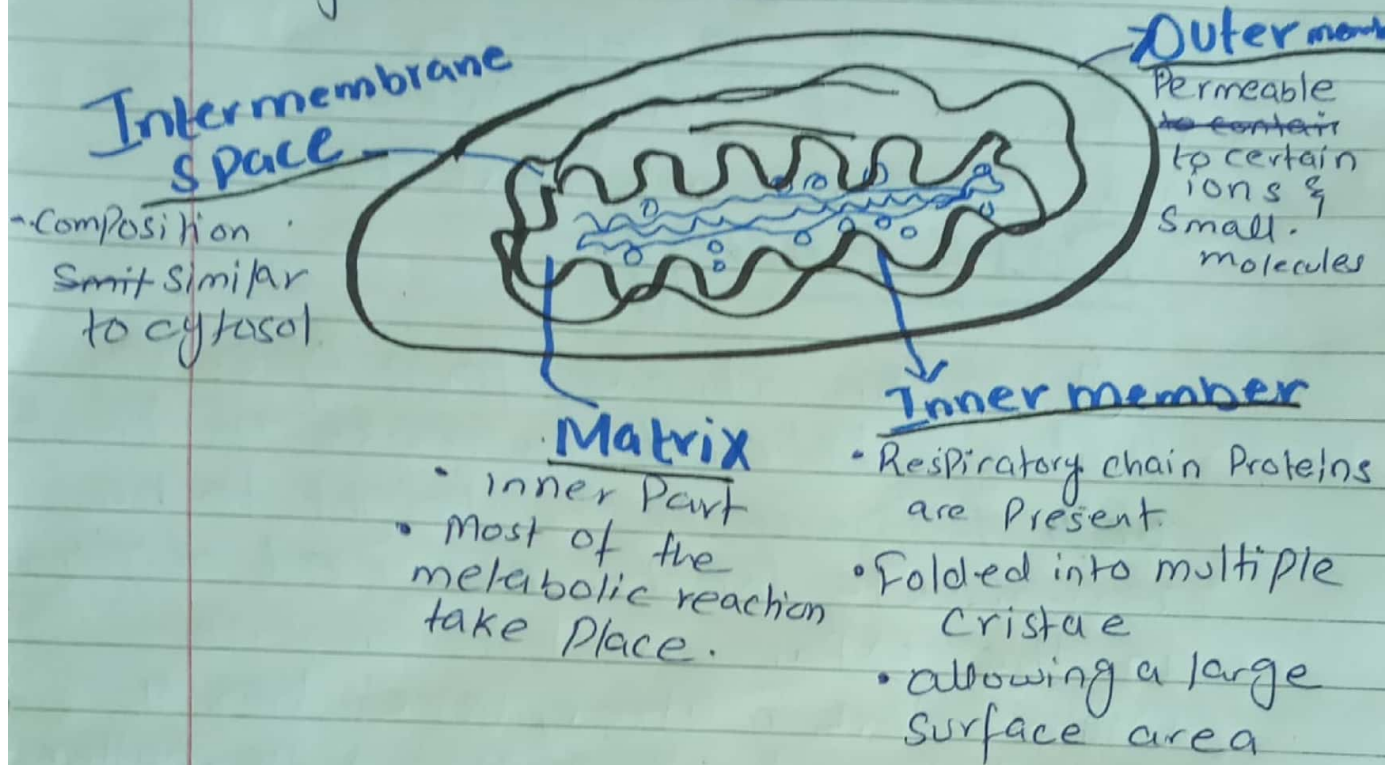 Intermembrane
space
- Composition
Smit Similar
to cytosol
Outer memb
Permeable
to contair
to certain
ions &
Small.
molecules
Matrix
• inner Part
• Most of the
metabolic reaction
take Place.
Inner member
• Respiratory chain Proteins
are Present.
• Folded into multiple
Cristae
• allowing a large
surface area